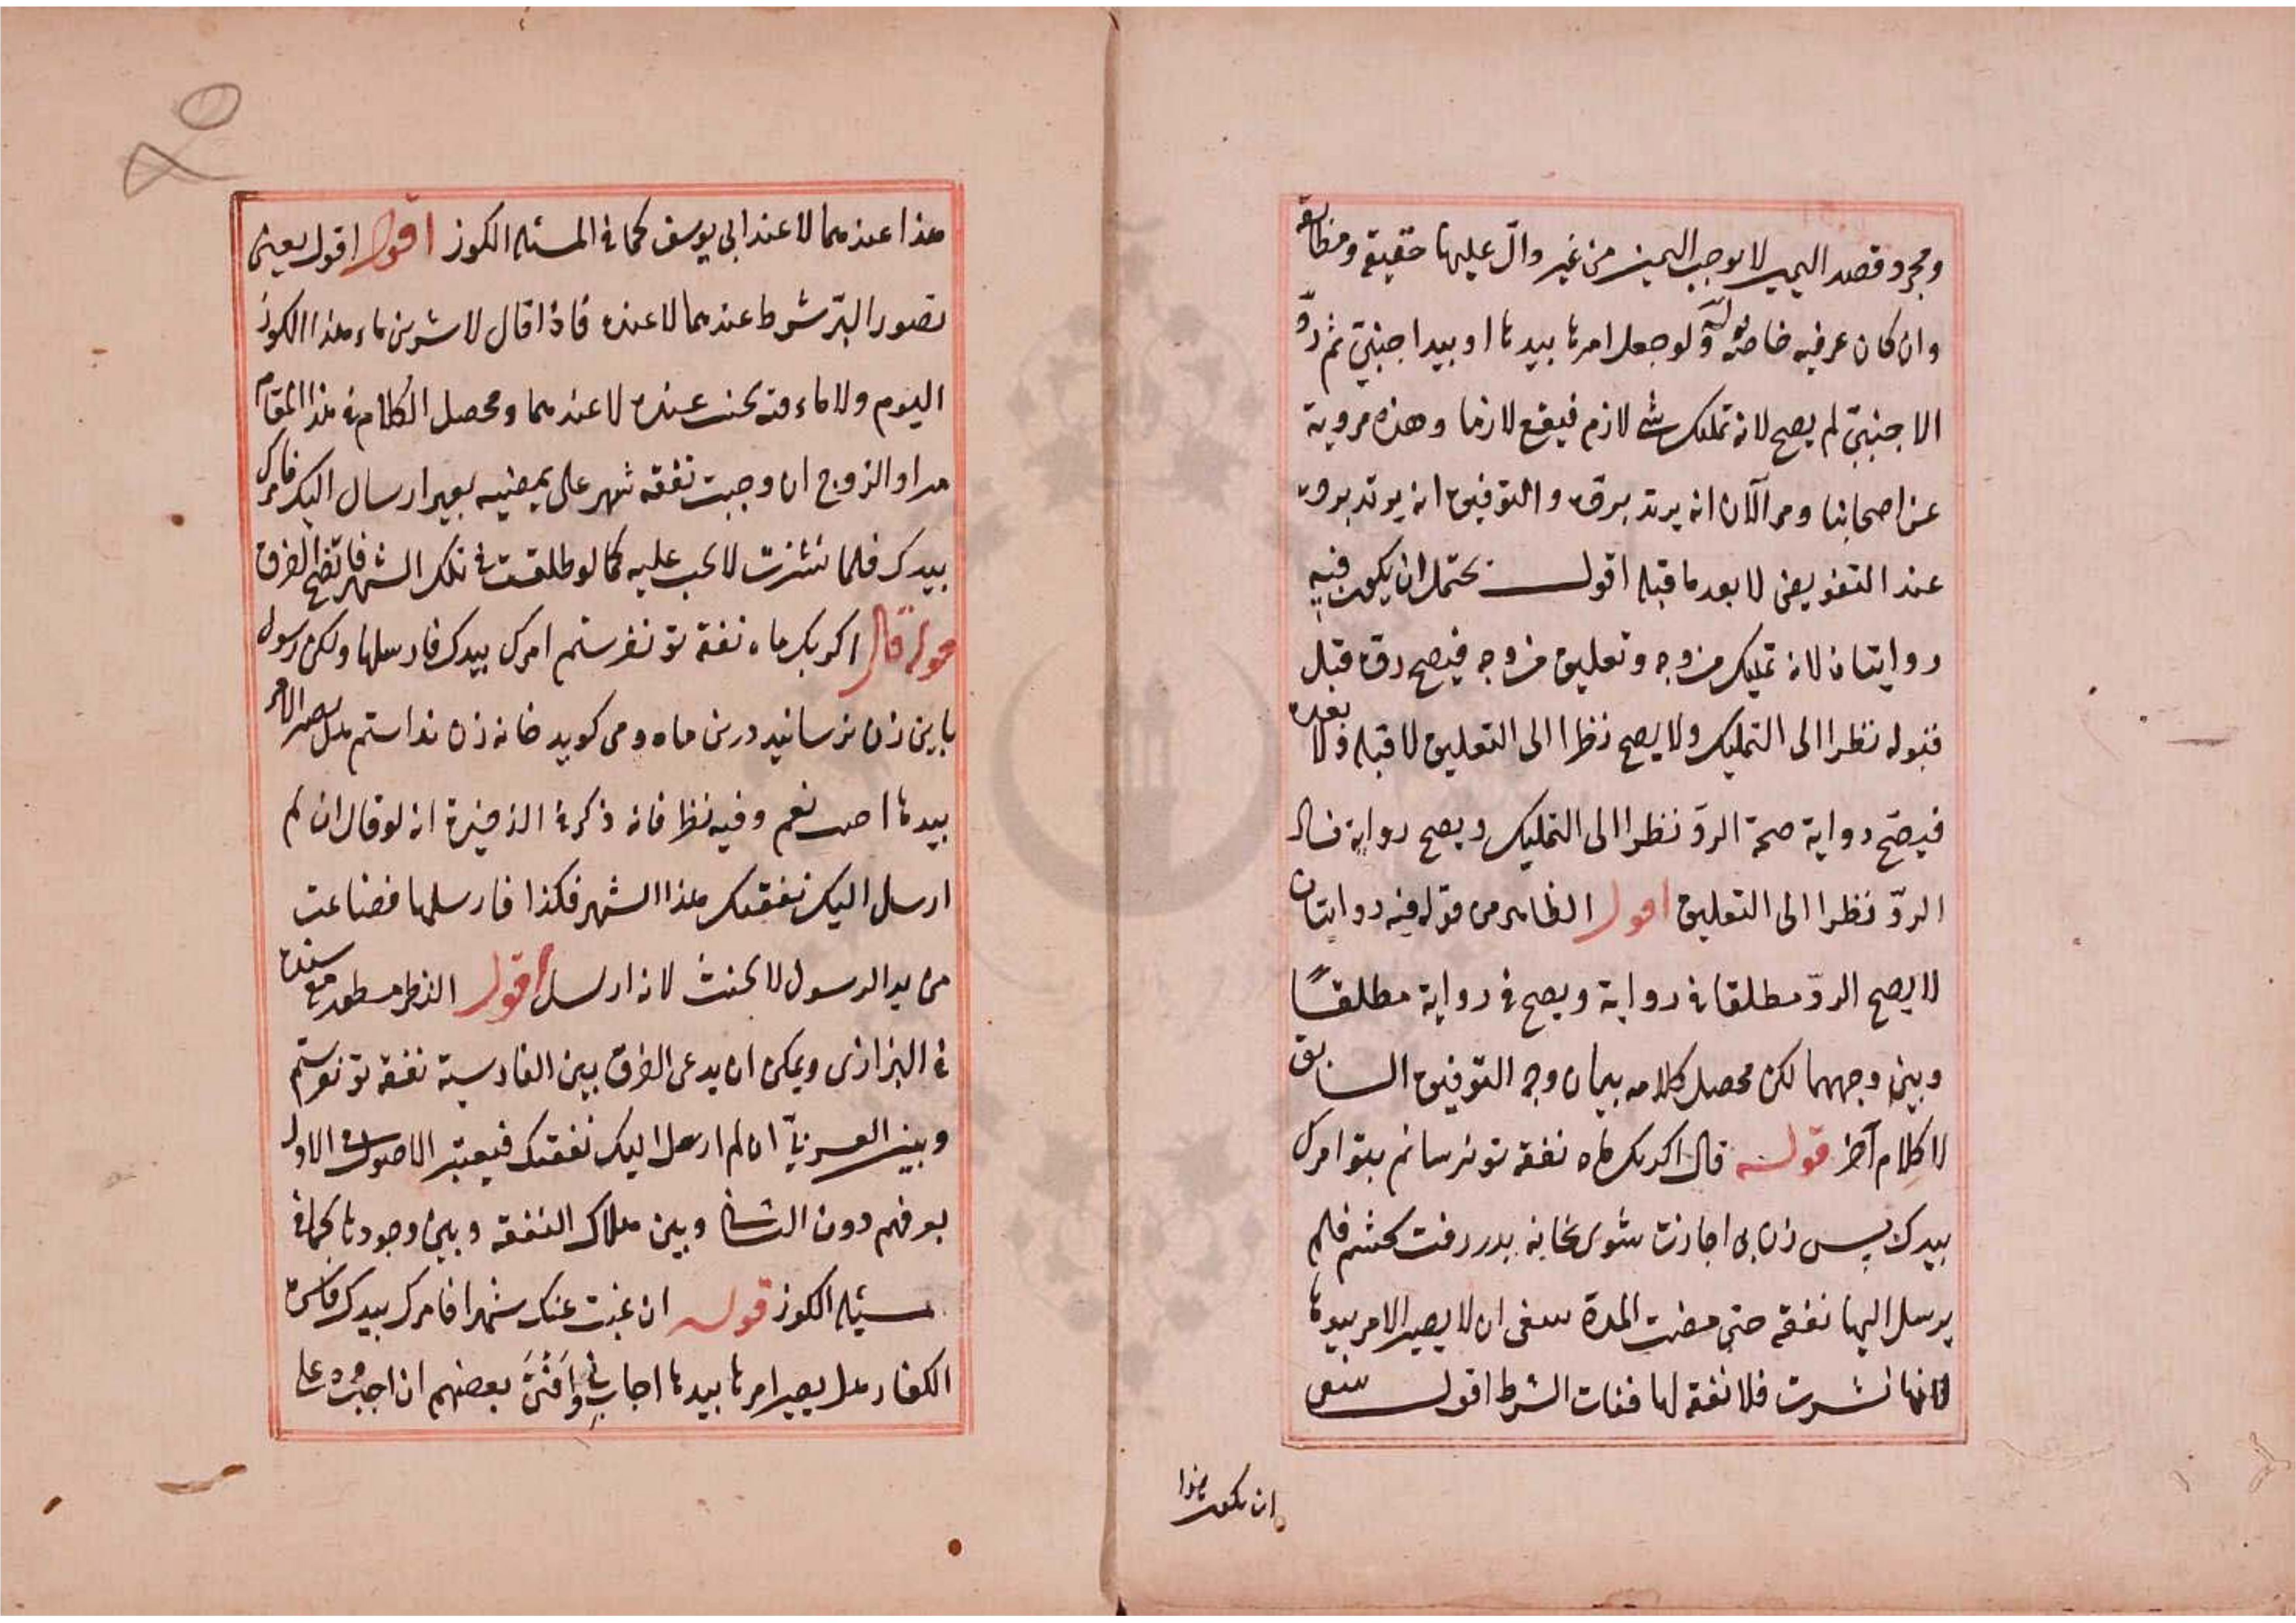 ومجرد قصد اليمين لا يوجب اليمين من غير دالّ عليها حقيقة ومطابقة
وان كان عرفيه خاصة قوله ولو جعل امرها بيدها او بيد اجنبيّ ثم ردّ
الاجنبيّ لم يصح لانه تمليك شئ لازم فيقع لازما وهذه مروية
عن اصحابنا ومر الآن انه يرتد برده والتوفيق انه يرتد برده
عند التفويض لا بعد ما قبله اقول يحتمل ان يكون فيه
روايتان لانه تمليك من وجه وتعليق من وجه فيصح رده قبل
قبوله نظرا الى التمليك ولا يصح نظرا الى التعليق لا قبله ولا بعده
فيصح رواية صحة الردّ نظرا الى التمليك ويصح رواية فساد
الردّ نظرا الى التعليق اقول الظاهر من قوله فيه روايتان
لا يصح الردّ مطلقا في رواية ويصح في رواية مطلقاً
وبين وجههما لكن محصل كلامه بيان وجه التوفيق السابق
لا كلام آخر قوله قال اكر يك ماه نفقه تو نرسانم بتو امرك
بيدك پس زن بى اجازت شوى بخانه پدر رفت بخشم فلم
يرسل اليها نفقه حتى مضت المدة ينبغى ان لا يصير الامر بيدها
لانها نشزت فلا نفقة لها ففات الشرط اقول ينبغى
ان يكون هذا
هذا عندهما لا عند ابى يوسف كما في المسئلة الكوز اقول اقول يعنى
تصور البرّ شرط عندهما لا عنده فاذا قال لاشربن ماء هذا الكوز
اليوم ولا ماء فيه يحنث عنده لا عندهما ومحصل الكلام في هذا المقام
مراد الزوج ان وجبت نفقه شهر على بمضيه بغير ارسال اليك فامرك
بيدك فلما نشزت لا يجب عليه كما لو طلقت في تلك الشهر فاتضح الفرق
قوله قال اكر يك ماه نفقه تو نفرستم امرك بيدك فارسلها ولكن رسول
باين زن نرسانيد درين ماه ومى كويد خانه زن ندانستم هل يصير الامر
بيدها اجب نعم وفيه نظر فانه ذكر في الذخيرة انه لو قال ان لم
ارسل اليك نفقتك هذا الشهر فكذا فارسلها فضاعت
من يد الرسول لا يحنث لانه ارسل اقول النظر مسطور مع سنده
في البزازى ويمكن ان يدعى الفرق بين الفارسية نفقه تو نفرستم
وبين العربيّة ان لم ارسل اليك نفقتك فيعتبر الاصول الاول
بعرفهم دون الثانى وبين هلاك النفقه وبين وجودها كما في
مسئلة الكوز قوله ان غبت عنك شهرا فامرك بيدك فاسره
الكفار هل يصير امرها بيدها اجاب وافتى بعضهم ان اجبروه على